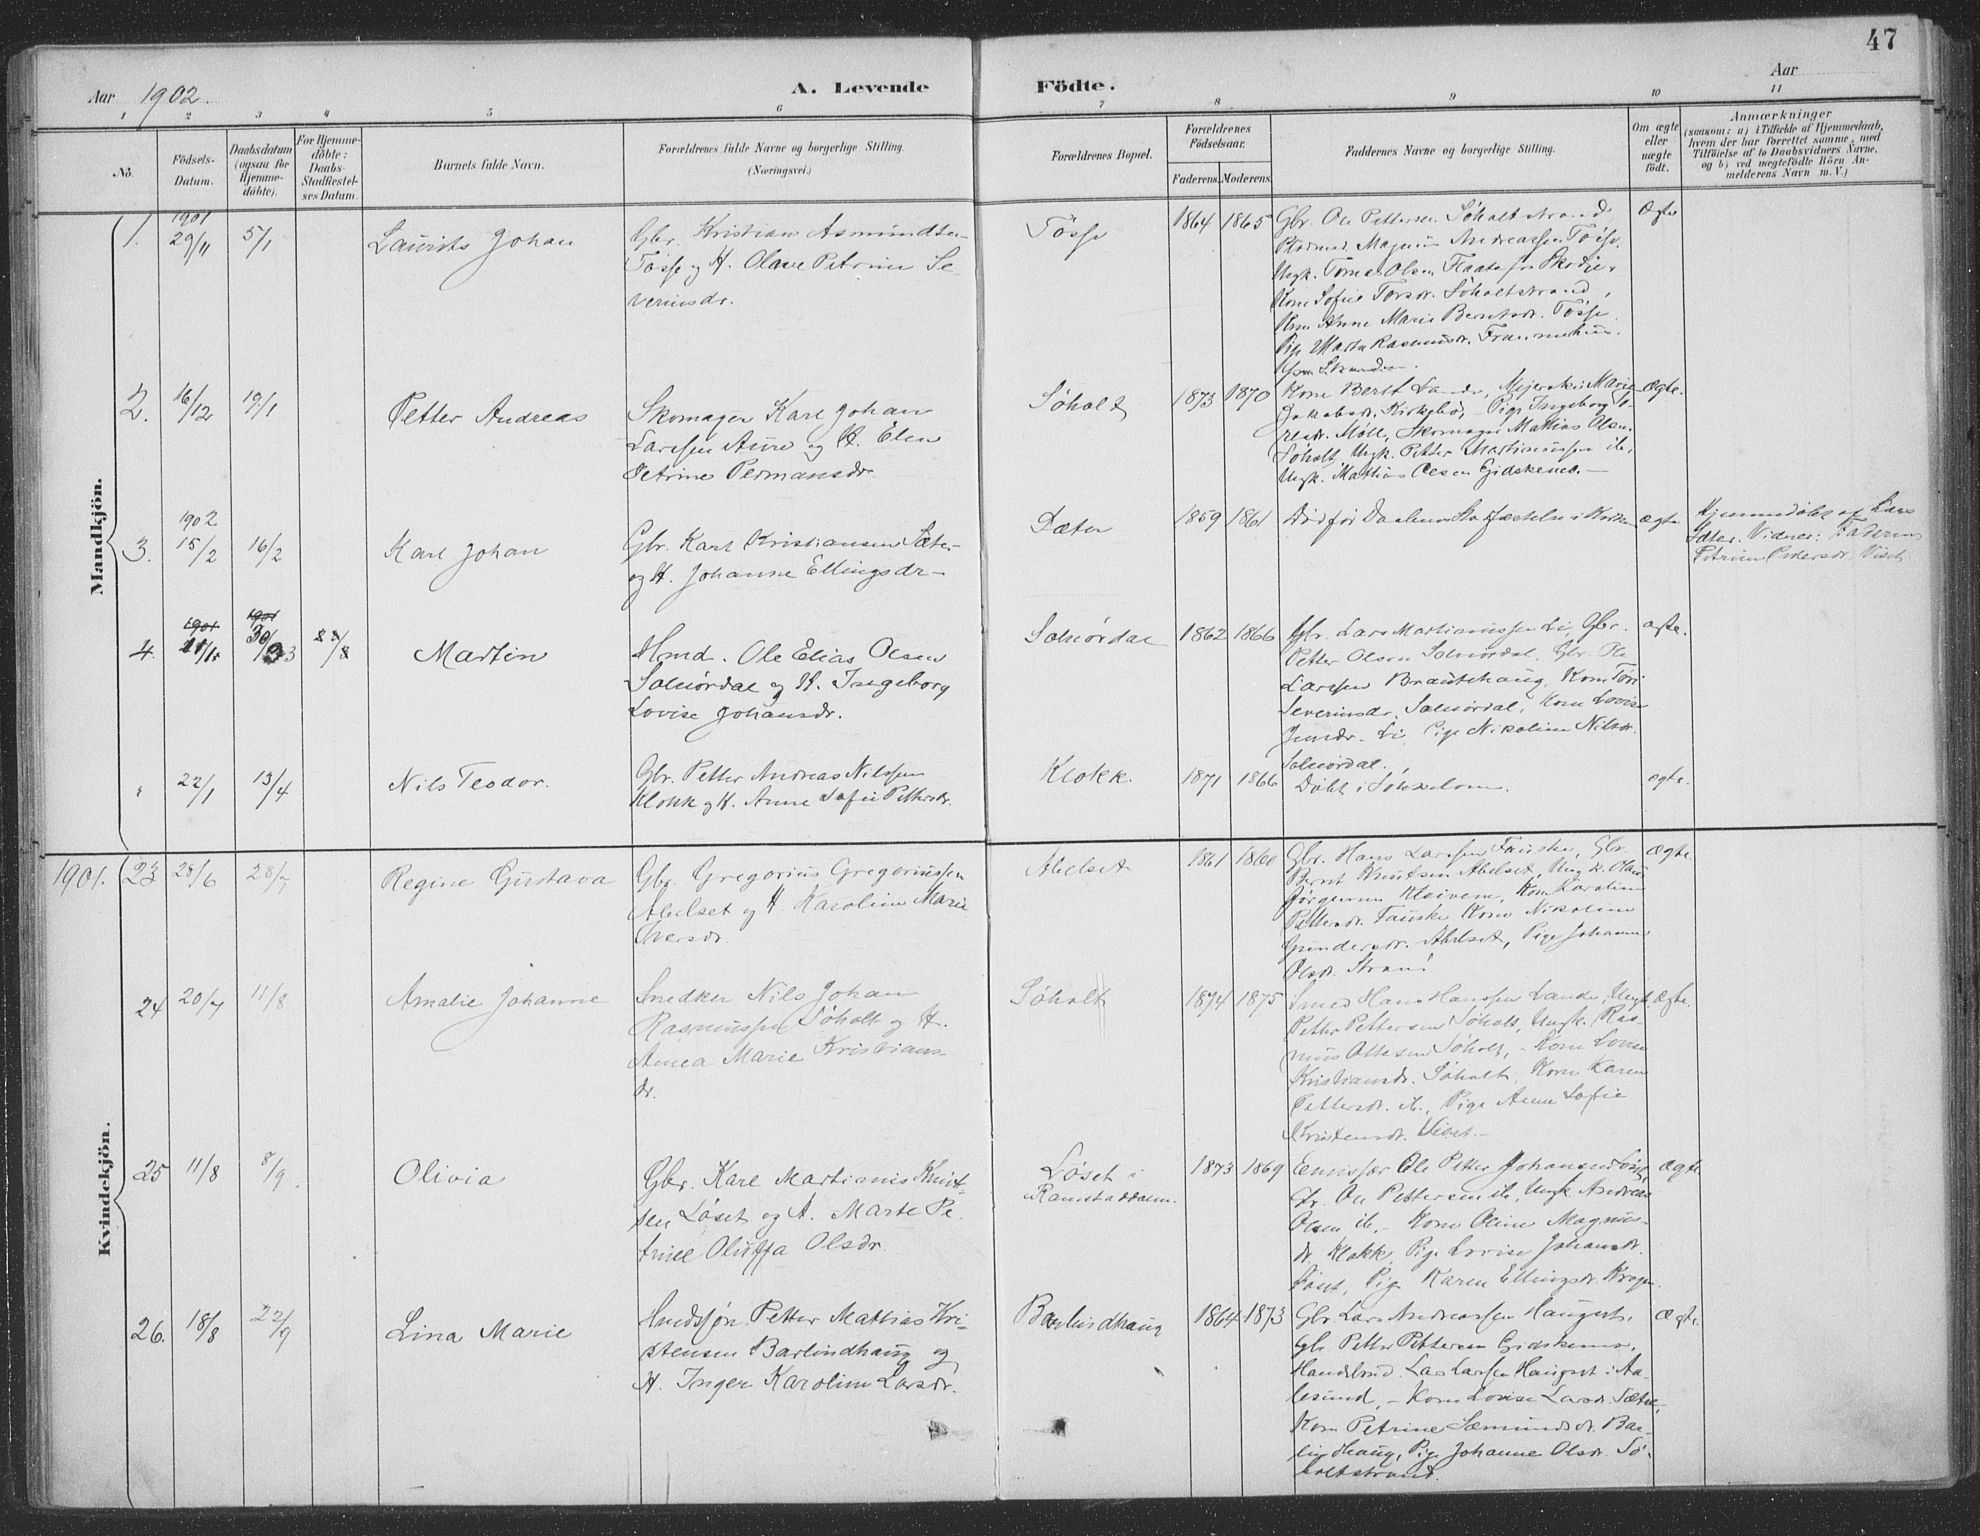 47
Aar 1902.
A. Levende Födte.
Aar
1 2 3 4 5 6 7 8 9 10 11
No.
Födsels-
Datum.
Daabsdatum
(ogsaa for
Hjemme-
döbte).
For Hjemme-
döbte:
Daabs-
Stadfæstel-
ses Datum.
Barnets fulde Navn.
Forældrenes fulde Navne og borgerlige Stilling.
(Næringsvei.)
Forældrenes Bopæl.
Forældrenes
Födselsaar.
Faderens. Moderens.
Faddernes Navne og borgerlige Stilling.
Om ægte
eller
uægte
födt.
Anmærkninger
(saasom: a) i Tilfælde af Hjemmedaab,
hvem der har forrettet samme, med
Tilföielse af to Daabsvidners Navne,
og b) ved uægtefödte Börn An-
melderens Navn m. V.)
Mandkjön.
1. 1901 29/11 5/1 Laurits Johan
Gbr. Kristian Asmundsen
Tøsse og H. Olave Petrine Se-
verinsdr.
Tøsse 1864 1865
Gbr. Ole Pettersen Søholtstrand,
Magnus Andreassen Tøsse,
Ungk. Tomas Olsen Flaate fra Skodje,
Kone Sofie Torsdr. Søholtstrand,
Kone Anne Marie Berntsdr. Tøsse,
Pige Marta Rasmusdr.
Ægte
2. 16/12 19/1 Petter Andreas
Skomager Karl Johan
Larssen Aure og H. Elen
Petrine Permansdr.
Søholt 1873 1870
Kone Berte Lande, Mejerske Marie
Jakobsdr. Kirkebø, Pige Ingeborg
Møll, Skomager Mathias Olsen
Søholt, Ungk. Petter Martinussen ib.,
Ungk. Mathias Olsen Gjidskemo.
Ægte.
3. 1902 15/2 16/2 Karl Johan
Gbr. Karl Kristiansen Sæter
og H. Johanne Ellingsdr.
Sæter 1859 1861
Død før Daabens Stadfæstelse i Kirken
ægte
Hjemmedøbt af Lars
Sæter. Vidner: Faderen,
Petrine Pedersdr. Viset.
4. 1901 11/1 1901 30/3 Martin
Hmd. Ole Elias Olsen
Solnørdal og H. Ingeborg
Lovise Johansdr.
Solnørdal 1862 1866
Gbr. Lars Martinussen Li, Gbr.
Petter Olsen Solnørdal, Gbr. Ole
Larssen Brautehaug, Kone
Severinsdr. Solnørdal, Kone Lovise
Jensdr. Li, Pige Nikoline Nilsdr.
Solnørdal.
ægte.
" 22/1 13/4 Nils Teodor.
Gbr. Petter Andreas Nilssen
Klokk og H. Anne Sofie Pettersdr.
Klokk. 1871 1866
Døbt i
ægte.
Kvindekjön.
1901. 23 28/6 28/7 Regine Gustava
Gbr. Gregorius Gregoriussen
Abelset og H. Karoline Marie
Iversdr.
Abelset 1861 1860
Gbr. Hans Larssen Fauske, Gbr.
Bernt Knutsen Abelset, Ungk. Olaus
Jørgensen Kleivem, Kone Karoline
Pettersdr. Fauske, Kone Nikoline
Gundersdr. Abelset, Pige Johanne
Olsdr. Strand
Ægte.
24 20/7 11/8 Amalie Johanne
Snedker Nils Johan
Rasmussen Søholt og H.
Anna Marie Kristians-
dr.
Søholt 1874 1875
Smed Hans Hanssen Lande, Ungk.
Petter Pettersen Søholt, Ungk. Ras-
mus Ottesen Søholt, - Kone Lovise
Kristiansdr. Søholt, Kone Karen
Pettersdr. ib., Pige Anne Sofie
Kristensdr. Viset.
Ægte.
25 11/8 8/9 Olivia
Gbr. Karl Martianus Knut-
sen Løset og H. Marte Pe-
trine Oluffa Olsdr.
Løset i
Ramstaddalen.
1873 1869
Emissær Ole Petter Johansen Løset,
Gbr. Ole Pettersen ib., Ungk. Andreas
Olsen ib., - Kone Oline Magnus-
dr. Klokk, Pige Lovise Johansdr.
Løset, Pige Karen Ellingsdr.
Ægte
26. 18/8 22/9 Lina Marie
Petter Mathias Kri-
stensen Barlindhaug og
H. Inger Karoline Larsdr.
Barlindhaug 1864 1873
Gbr. Lars Andreassen Haugset,
Gbr. Petter Pettersen Gjidskemo,
Lars Larssen Haugset i Aa-
lesund, - Kone Lovise Larsdr. Sætre,
Kone Petrine Sæmundsdr. Bar-
lindhaug, Pige Johanne Olsdr. Sø-
holtstrand
Ægte.